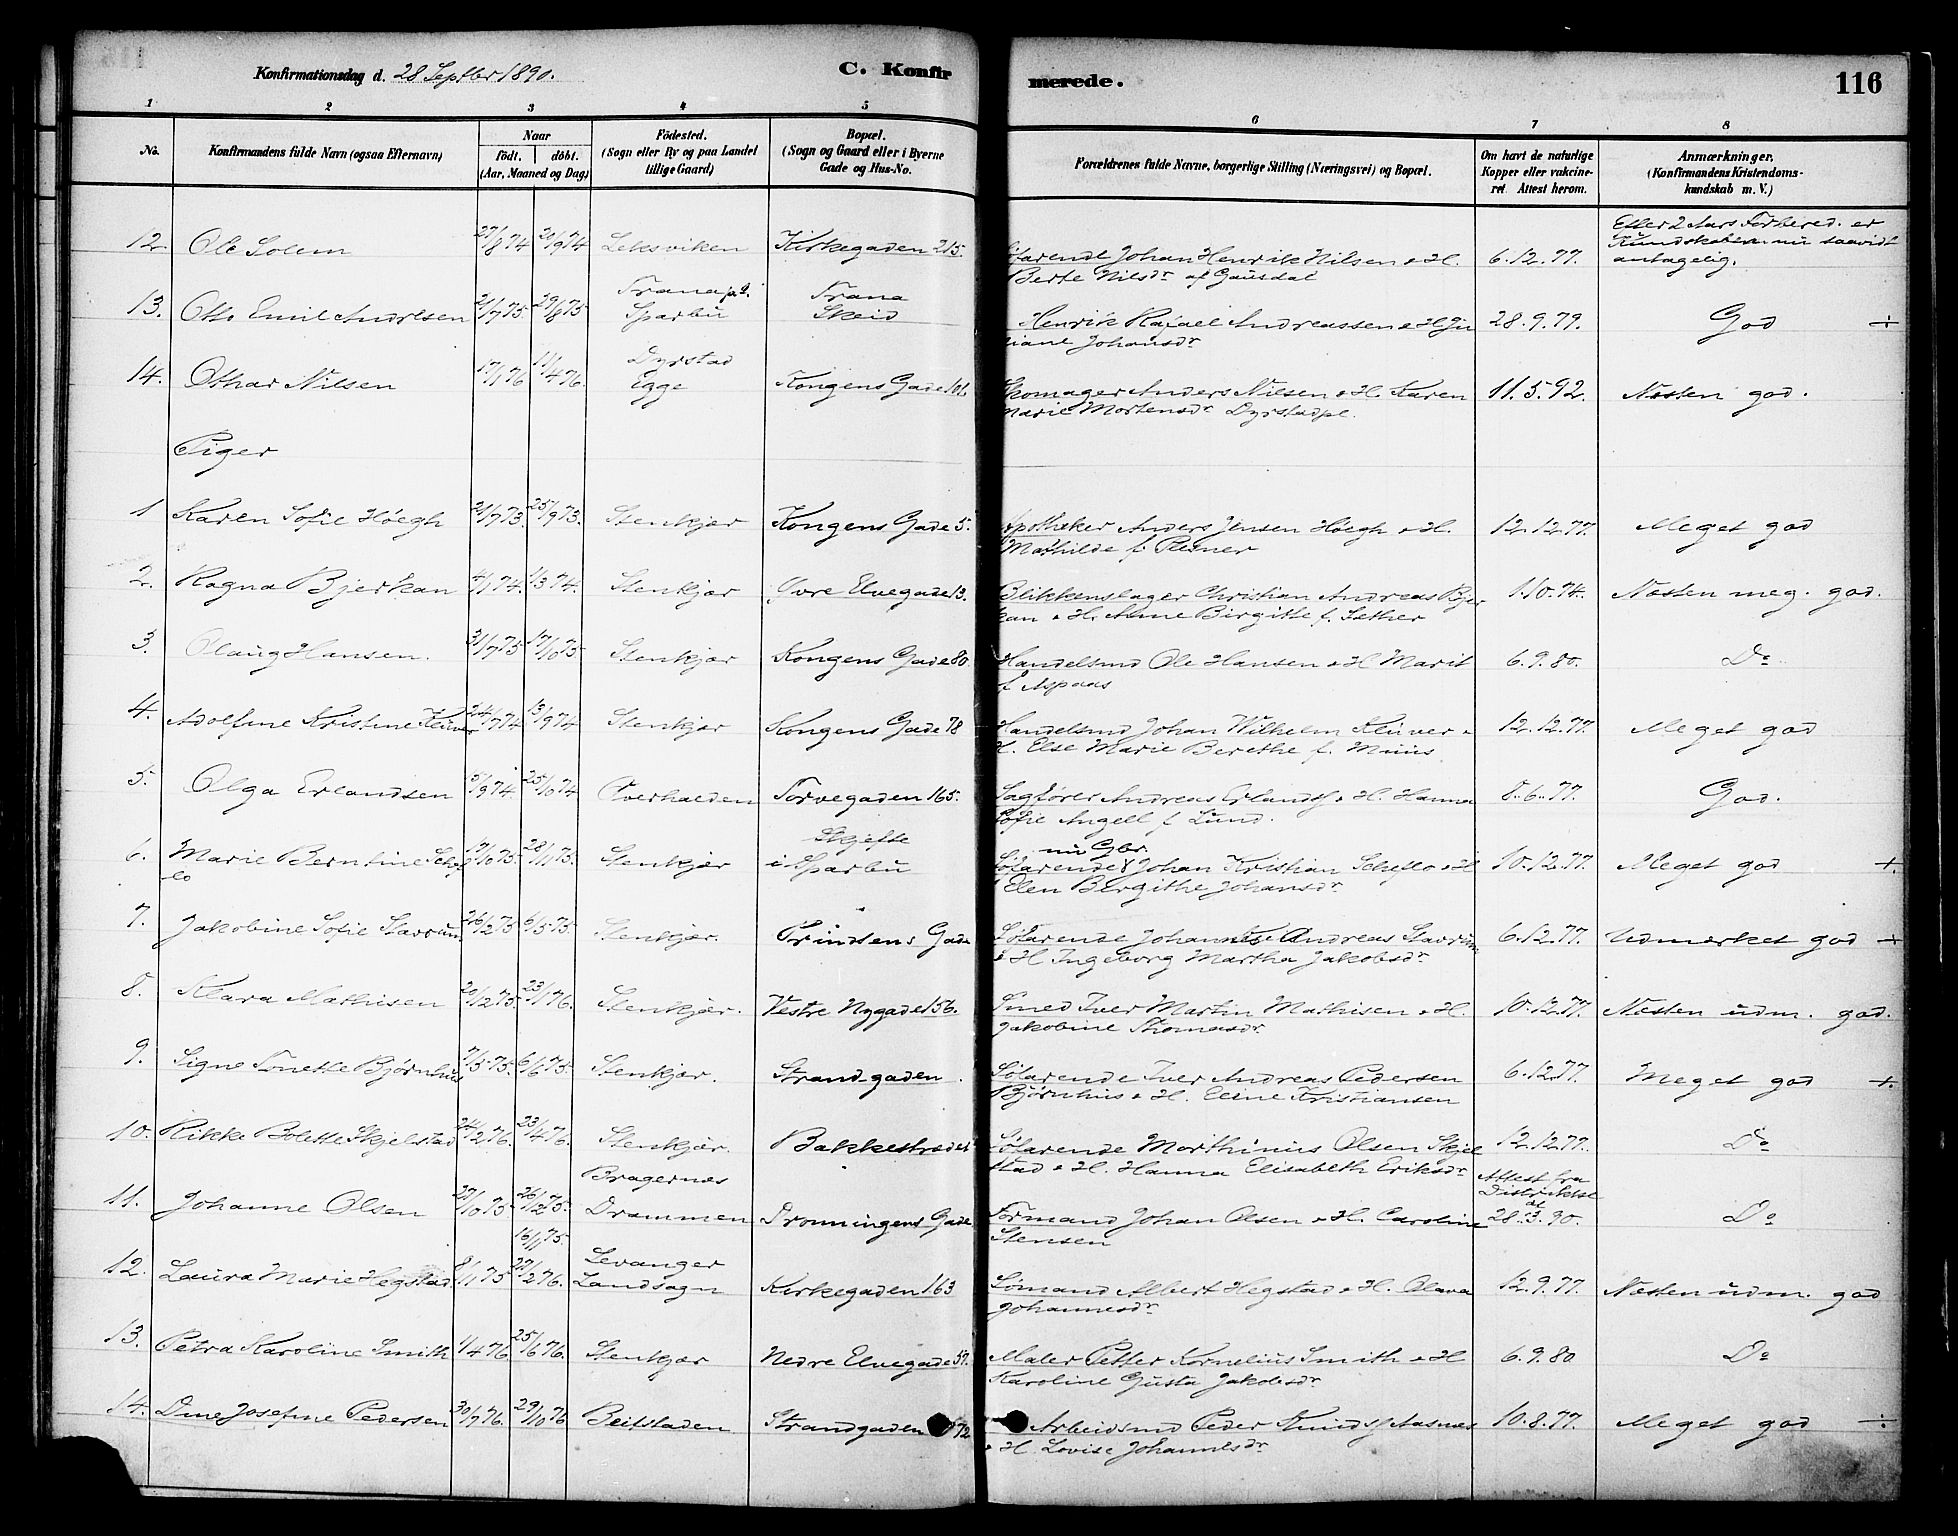 Konfirmationsdag d. 28 Septbr 1890. C. Konfir merede. 116
1 2 3 4 5 6 7 8
No. Konfirmandens fulde Navn (ogsaa Efternavn) Naar födt. döbt. (Aar, Maaned og Dag) Födested. (Sogn eller By og paa Landet tillige Gaard) Bopæl. (Sogn og Gaard eller i Byerne Gade og Hus-No. Forældrenes fulde Navne, borgerlige Stilling (Næringsvei) og Bopæl. Om havt de naturlige Kopper eller vakcineret. Attest herom. Anmærkninger, (Konfirmandens Kristendomskundskab m. V.)
12. Ole Solem 27/8 74 20/9 74 Leksviken Kirkegaden 215. Söfarende Johan Henrik Nilsen & H. 6.12.77. Efter 2 Aars Forbered. er Kundskaben nu saavidt antagelig.
Berte Nilsdr af Gausdal
13. Otto Emil Andresen 21/7 75. 29/8 75 Frana p.g. Sparbu Frana Skeid Henrik Rafael Andreassen & H. Ju 28.9.79. God ÷
liane Johansdr
14. Othar Nilsen 17/1 76 17/4 76. Dyrstad Egge Kongens Gade 106 Skomager Anders Nilsen & H. Karen 11.5.92. Næsten god.
Marie Mortensdr Dyrstadpl.
Piger
1 Karen Sofie Høegh 21/7 73. 25/9 73. Stenkjær Kongens Gade 5. Apotheker Anders Jensen Høegh & H. 12.12.77. Meget god
Mathilde f. Plesner
2. Ragna Bjerkan 4/1 74. 1/3 74. Stenkjær Øvre Elvegade 13. Blikkenslager Christian Andreas Bjer 1.10.74. Næsten meg. god.
kan & H. Anne Birgitte f. Sæther
3. Olaug Hansen. 31/7 75 17/10 75 Stenkjær Kongens Gade 80 Handelsmd Ole Hansen & H Marit 6.9.80. Do
f Aspaas
4. Adolfine Kristine Klüver 24/7 74 13/9 74 Stenkjær Kongens Gade 78 Handelsmd Johan Wilhelm Klüver & 12.12.77. Meget god
H. Else Marie Berethe f. Muus
5. Olga Erlandsen 15/9 74. 25/10 74 Overhalden Torvegaden 165. Sagfører Andreas Erlands & H. Hanna 8.6.77. God.
Sofie Angell f Lund.
6. Marie Berntine Schef 17/10 75. 28/11 75. Stenkjær Skjefte i Sparbu nu Gbr. Söfarende Johan Kristian Scheflo & H 10.12.77. Meget god +.
lo Elen Bergithe Johansdr
7. Jakobine Sofie Stavrum 26/2 75 6/5 75. Stenkjær. Prindsens Gade Söfarende Johannes Andreas Stavrum 6.12.77. Udmærket god +
& H Ingeborg Martha Jakobsdr
8. Klara Mathisen 20/12 75. 23/1 76. Stenkjær. Vestre Nygade 156. Smed Iver Martin Mathisen & H. 10.12.77. Næsten udm. god.
Jakobine Thomasdr.
9. Signe Tonette Bjørnhus 7/3 75. 6/6 75. Stenkjær. Strandgaden. Söfarende Iver Andreas Pedersen 6.12.77. Meget god +.
Bjørnhus & H. Eline Kristiansen
10. Rikke Bolette Skjelstad 24/2 76. 23/4 76. Stenkjær. Bakkestrædet Söfarende Morthinus Olsen Skjel 12.12.77. Do
stad & H. Hanna Elisabeth Eriksdr
11. Johanne Olsen 27/10 75 26/12 75. Bragernes Drammen Dronningens Gade Formand Johan Olsen & H. Caroline Attest fra Distriktsl. af 28.3.90. Do
Stensen
12. Laura Marie Hegstad. 8/1 75 16/1 75. 27/2 76. Levanger Landsogn Kirkegaden 163 Sömand Albert Hegstad & H. Olava 12.9.77. Næsten udm. god
Johannesdr
13. Petra Karoline Smith 1/4 76 25/6 76. Stenkjær Nedre Elvegade 57. Maler Petter Kornelius Smith & H 6.9.80 Do
Karoline Gusta Jakobsdr
14. Dine Josefine Pedersen 30/7 76. 29/10 76 Beitstaden Strandgaden 72 Arbeidsmd Peder Knuds Aasnes 10.8.77. Meget god ÷
& H. Lovise Johannesdr